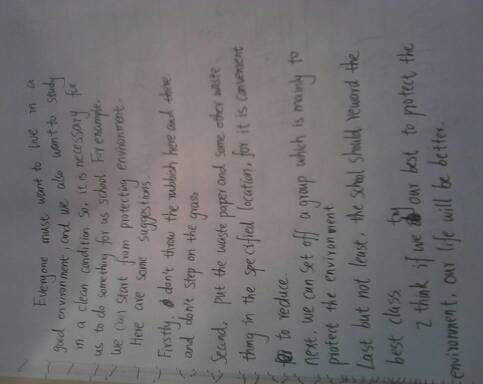 Everyone muse want to live in a
good environment, and we also want to study
in a clean condition. So, it is necessary for
us to do something for us school. For example.
we can start from protecting environment.
Here are some suggestions.
Firstly, don't throw the rubbish here and there
and don't step on the grass
Second, put the waste paper and some other waste
thing in the specified location, for it is convenient
to reduce.
next, we can set off a group which is mainly to
protect the environment
Last but not lease, the school should reward the
best class
I think if we try our best to protect the
environment, our life will be better.